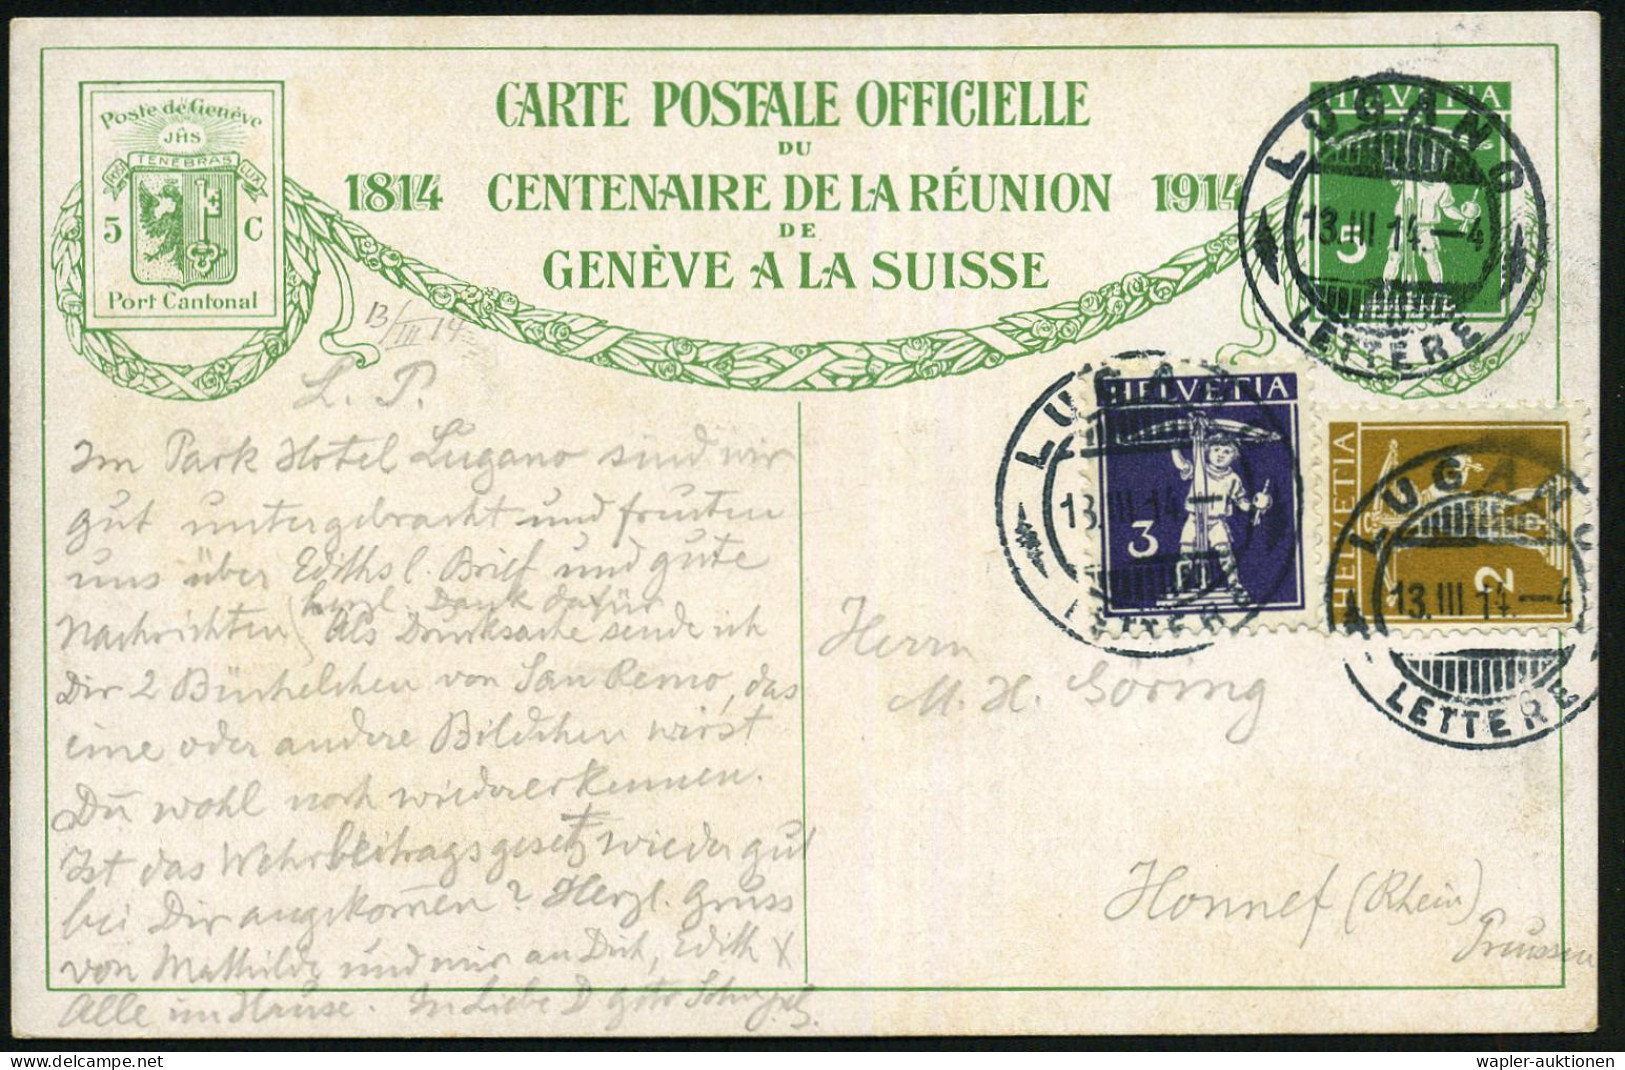 CARTE POSTALE OFFICIELLE
DU
1814 CENTENAIRE DE LA RÉUNION 1914
DE
GENÈVE A LA SUISSE
Poste de Genève
JHS
POST TENEBRAS LUX
5 C
Port Cantonal
HELVETIA
5
LUGANO
13.III 14.—4
LETTERE
HELVETIA
3
LUGANO
13.III 14.—
LETTERE
HELVETIA
2
LUGANO
13.III 14.—4
LETTERE
13/III 14
L. P.
Im Park Hotel Lugano sind wir
gut untergebracht und freuten
uns über Ediths l. Brief und gute
herzl. Dank dafür
Nachrichten Als Drucksache sende ich
Dir 2 Büchelchen von San Remo, das
eine oder andere Bildchen wirst
Du wohl noch wiedererkennen.
Ist das Wehrbeitragsgesetz wieder gut
bei Dir angekommen? Herzl. Gruss
von Mathilde und mir an Dich, Edith &
Alle im Hause. In Liebe D
Herrn
M. H. Göring
Honnef (Rhein)
Preussen
delcampe.net
wapler-auktionen